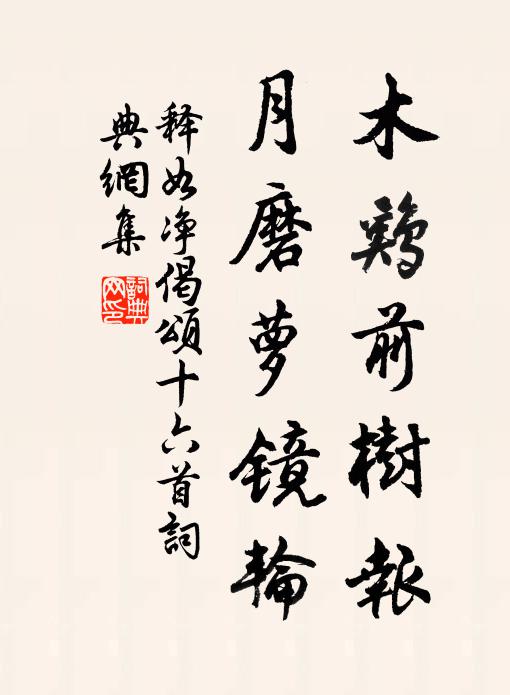 木鷄前樹報
月磨夢鏡輪
释如净偈頌十六首詞
典網集
詞典網印